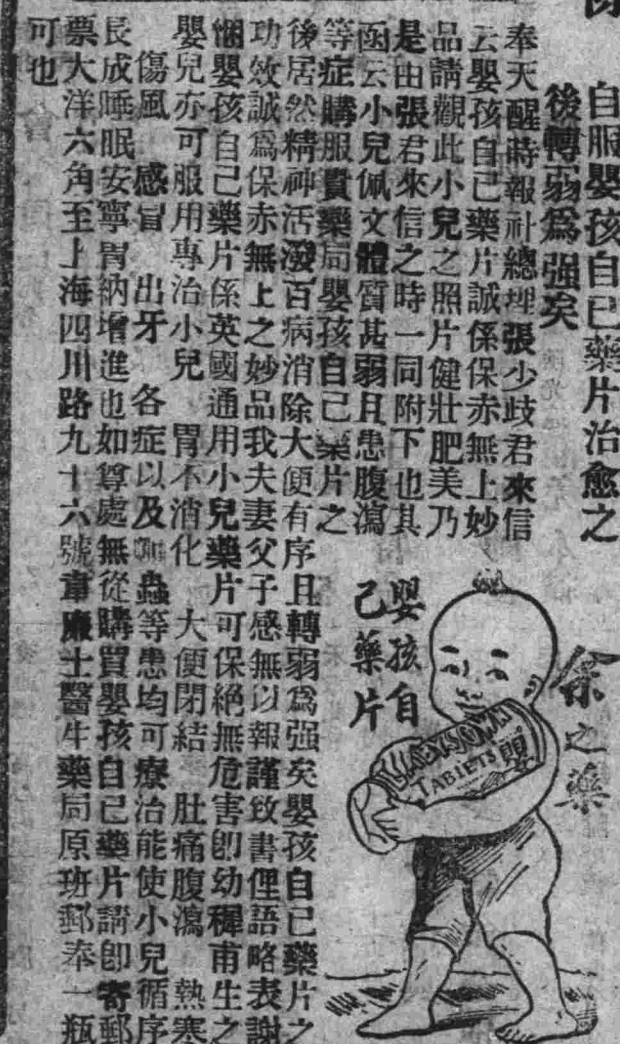 自服嬰孩自己藥片治愈之
後轉弱爲强矣
奉天醒時報社總理張少歧君來信
云嬰孩自己藥片誠係保赤無上妙
品請觀此小兒之照片健壯肥美乃
是由張君來信之時一同附下也其
函云小兒佩文體質甚弱且患腹瀉
等症購服貴藥局嬰孩自己藥片之
後居然精神活潑百病消除大便有序且轉弱爲强矣嬰孩自己藥片之
功效誠爲保赤無上之妙品我夫妻父子感無以報謹致書俚語略表謝
悃嬰孩自己藥片係英國通用小兒藥片可保絕無危害卽幼穉甫生之
嬰兒亦可服用專治小兒 胃不消化 大便閉結 肚痛腹瀉 熱寒
傷風 感冒 出牙 各症以及蟲等患均可療治能使小兒循序
長成睡眠安寧胃納增進也如尊處無從購買嬰孩自己藥片請卽寄郵
票大洋六角至上海四川路九十六號韋廉士醫生藥局原班郵奉一瓶
可也
余之藥
嬰孩自
己藥片
BABY'S OWN
TABLETS 嬰